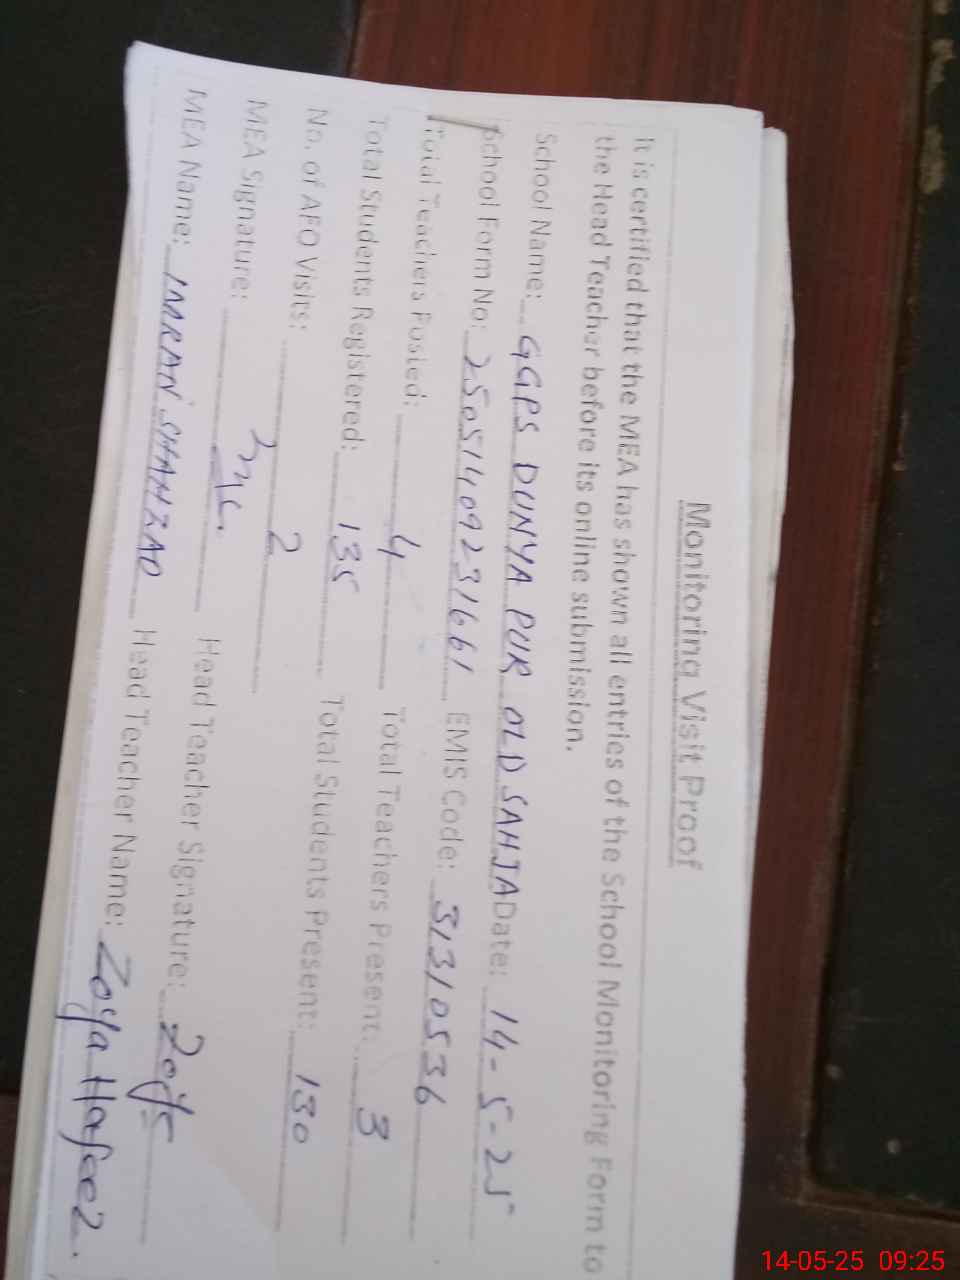 Monitoring Visit Proof
It is certified that the MEA has shown all entries of the School Monitoring Form to
the Head Teacher before its online submission.
School Name: GGPS DUNYA PUR OLD SAHJA Date: 14-5-25
School Form No: 25051409231661 EMIS Code: 31310536
Total Teachers Posted: 4 Total Teachers Present: 3
Total Students Registered: 135 Total Students Present: 130
No. of AEO Visits: 2
MEA Signature: Head Teacher Signature:
MEA Name: IMRAN SHAHZAD Head Teacher Name: Zoya Hafeez.
14-05-25 09:25